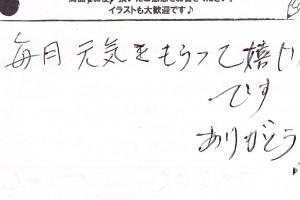 イラストも大歓迎です♪
毎月 元気をもらって嬉し
です
ありがとう